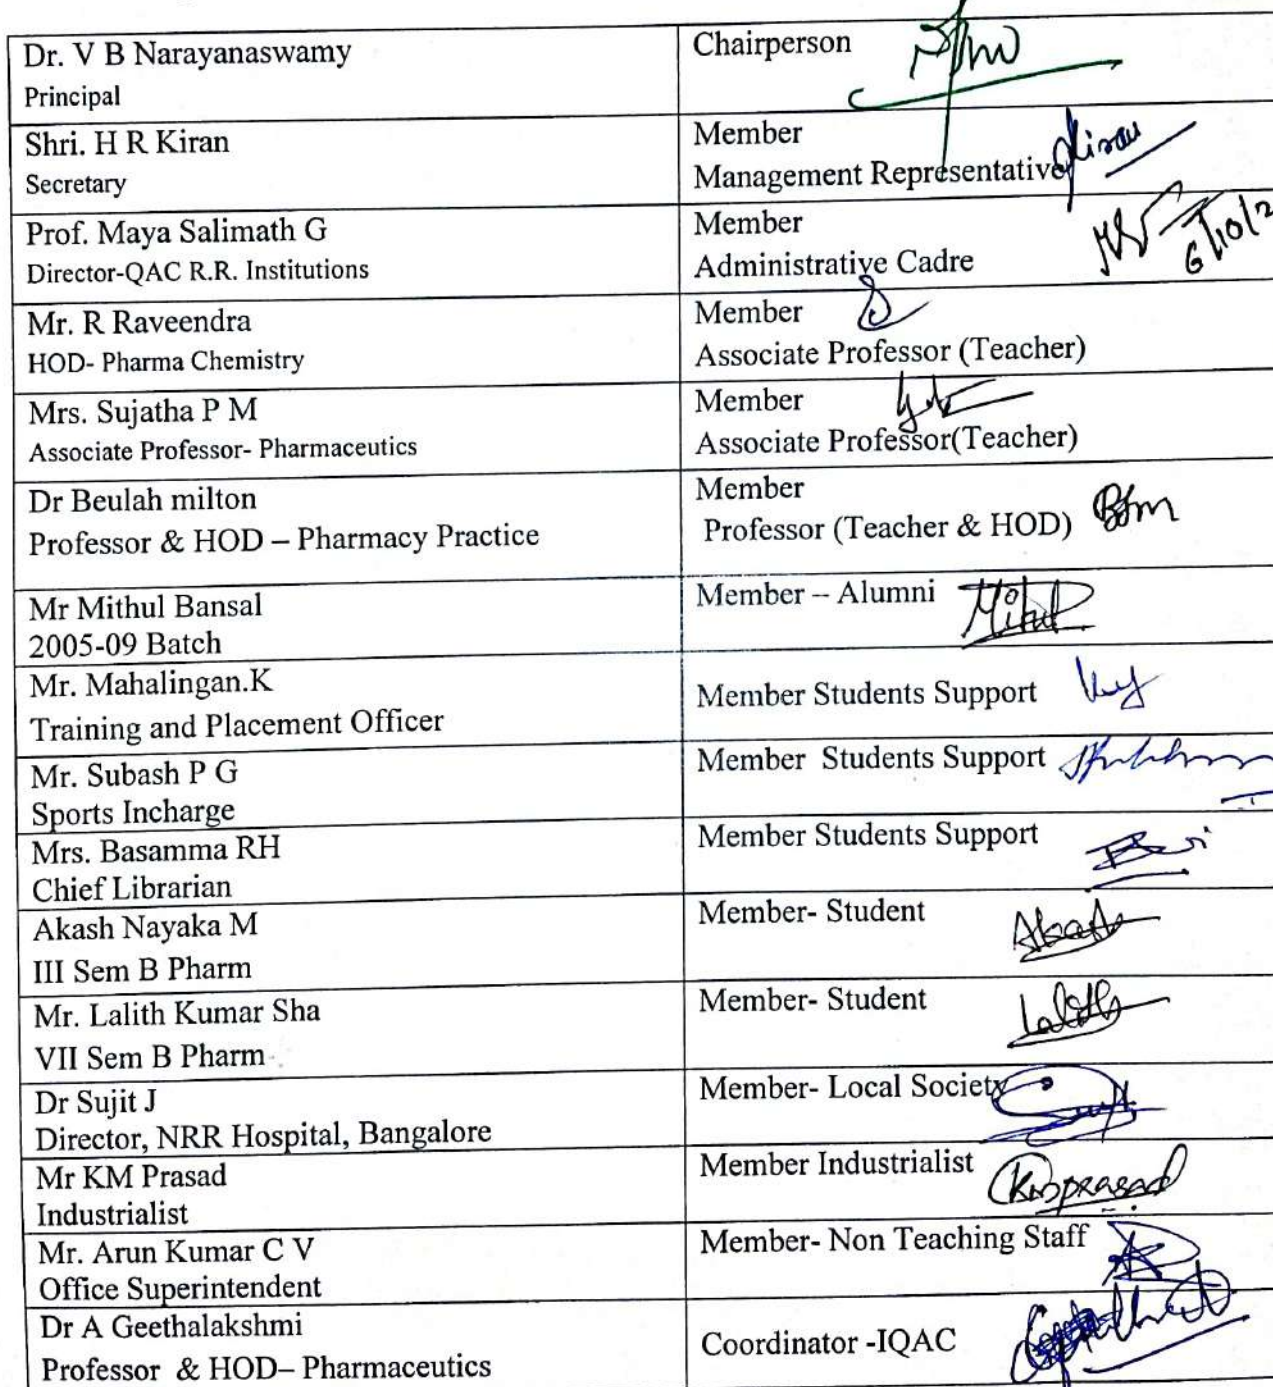 Dr. V B Narayanaswamy
Principal
Chairperson
Shri. H R Kiran
Secretary
Member
Management Representative
Kiran
Prof. Maya Salimath G
Director-QAC R.R. Institutions
Member
Administrative Cadre
6/10/2
Mr. R Raveendra
HOD- Pharma Chemistry
Member
Associate Professor (Teacher)
Mrs. Sujatha P M
Associate Professor- Pharmaceutics
Member
Associate Professor(Teacher)
Dr Beulah milton
Professor & HOD – Pharmacy Practice
Member
Professor (Teacher & HOD)
Mr Mithul Bansal
2005-09 Batch
Member – Alumni
Mr. Mahalingan.K
Training and Placement Officer
Member Students Support
Mr. Subash P G
Sports Incharge
Member Students Support
Mrs. Basamma RH
Chief Librarian
Member Students Support
Akash Nayaka M
III Sem B Pharm
Member- Student
Mr. Lalith Kumar Sha
VII Sem B Pharm
Member- Student
Lalith
Dr Sujit J
Director, NRR Hospital, Bangalore
Member- Local Society
Mr KM Prasad
Industrialist
Member Industrialist
Kmprasad
Mr. Arun Kumar C V
Office Superintendent
Member- Non Teaching Staff
Dr A Geethalakshmi
Professor & HOD– Pharmaceutics
Coordinator -IQAC